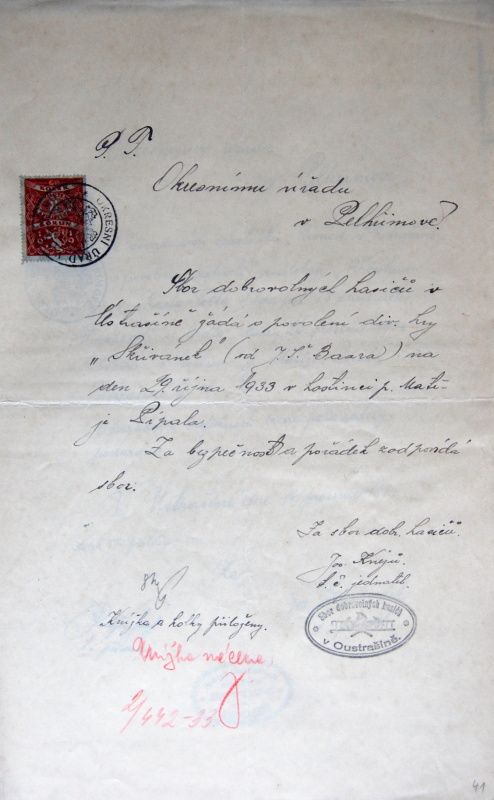 P. T.
Okresnímu úřadu
v Pelhřimově
OKRESNÍ ÚŘAD
KORUN
Sbor dobrovolných hasičů v
Ústrašíně žádá o povolení div. hry
„Skřivánek“ (od J. Š. Baara) na
den 29. října 1933 v hostinci p. Matě-
je Pípala.
Za bezpečnost a pořádek zodpovídá
sbor.
Za sbor dobr. hasičů.
Jos.
t. č. jednatel.
Sbor dobrovolných hasičů
v Oustrašíně.
Knížka a kolky přiloženy.
Knížka
2/442-33
41